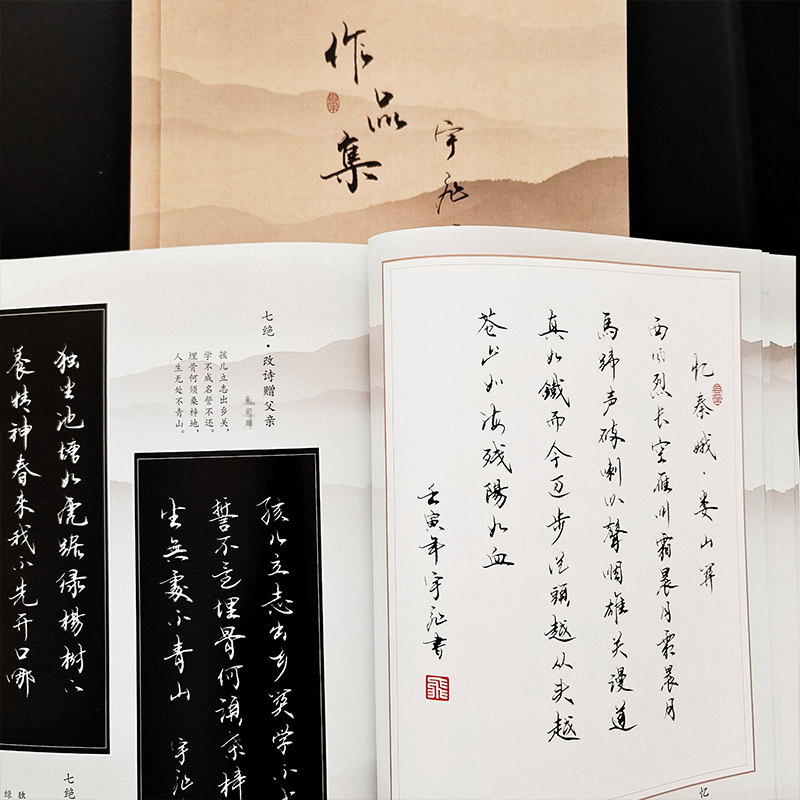 作品集
宇
独坐池塘如虎踞绿楊樹下
養精神春來我不先开口哪
七绝
独
绿
七绝·改诗赠父亲
孩儿立志出乡关，
学不成名誓不还。
埋骨何须桑梓地，
人生无处不青山。
孩儿立志出乡関学不
誓不还埋骨何須桑梓
生無處不青山 宇
忆秦娥·娄山関
西风烈长空雁叫霜晨月霜晨月
馬蹄声碎喇叭聲咽雄关漫道
真如鐵而今迈步從頭越从头越
苍山如海残陽如血
壬寅年宇書
忆